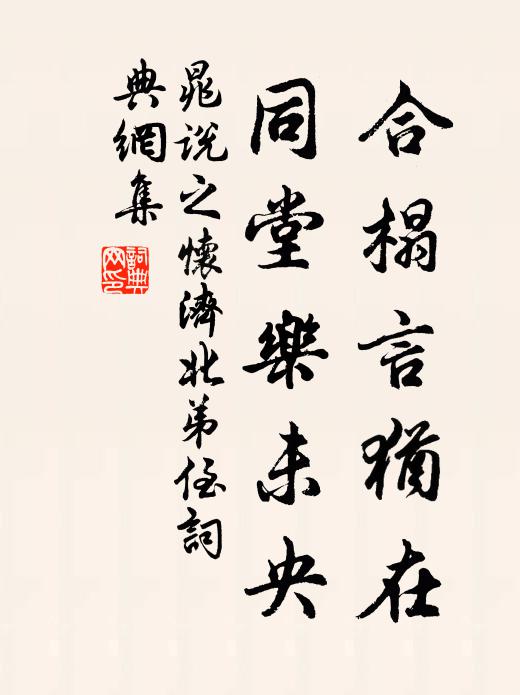 合榻言猶在
同堂樂未央
晁説之懷濟北弟侄詞
典網集
詞典
网印